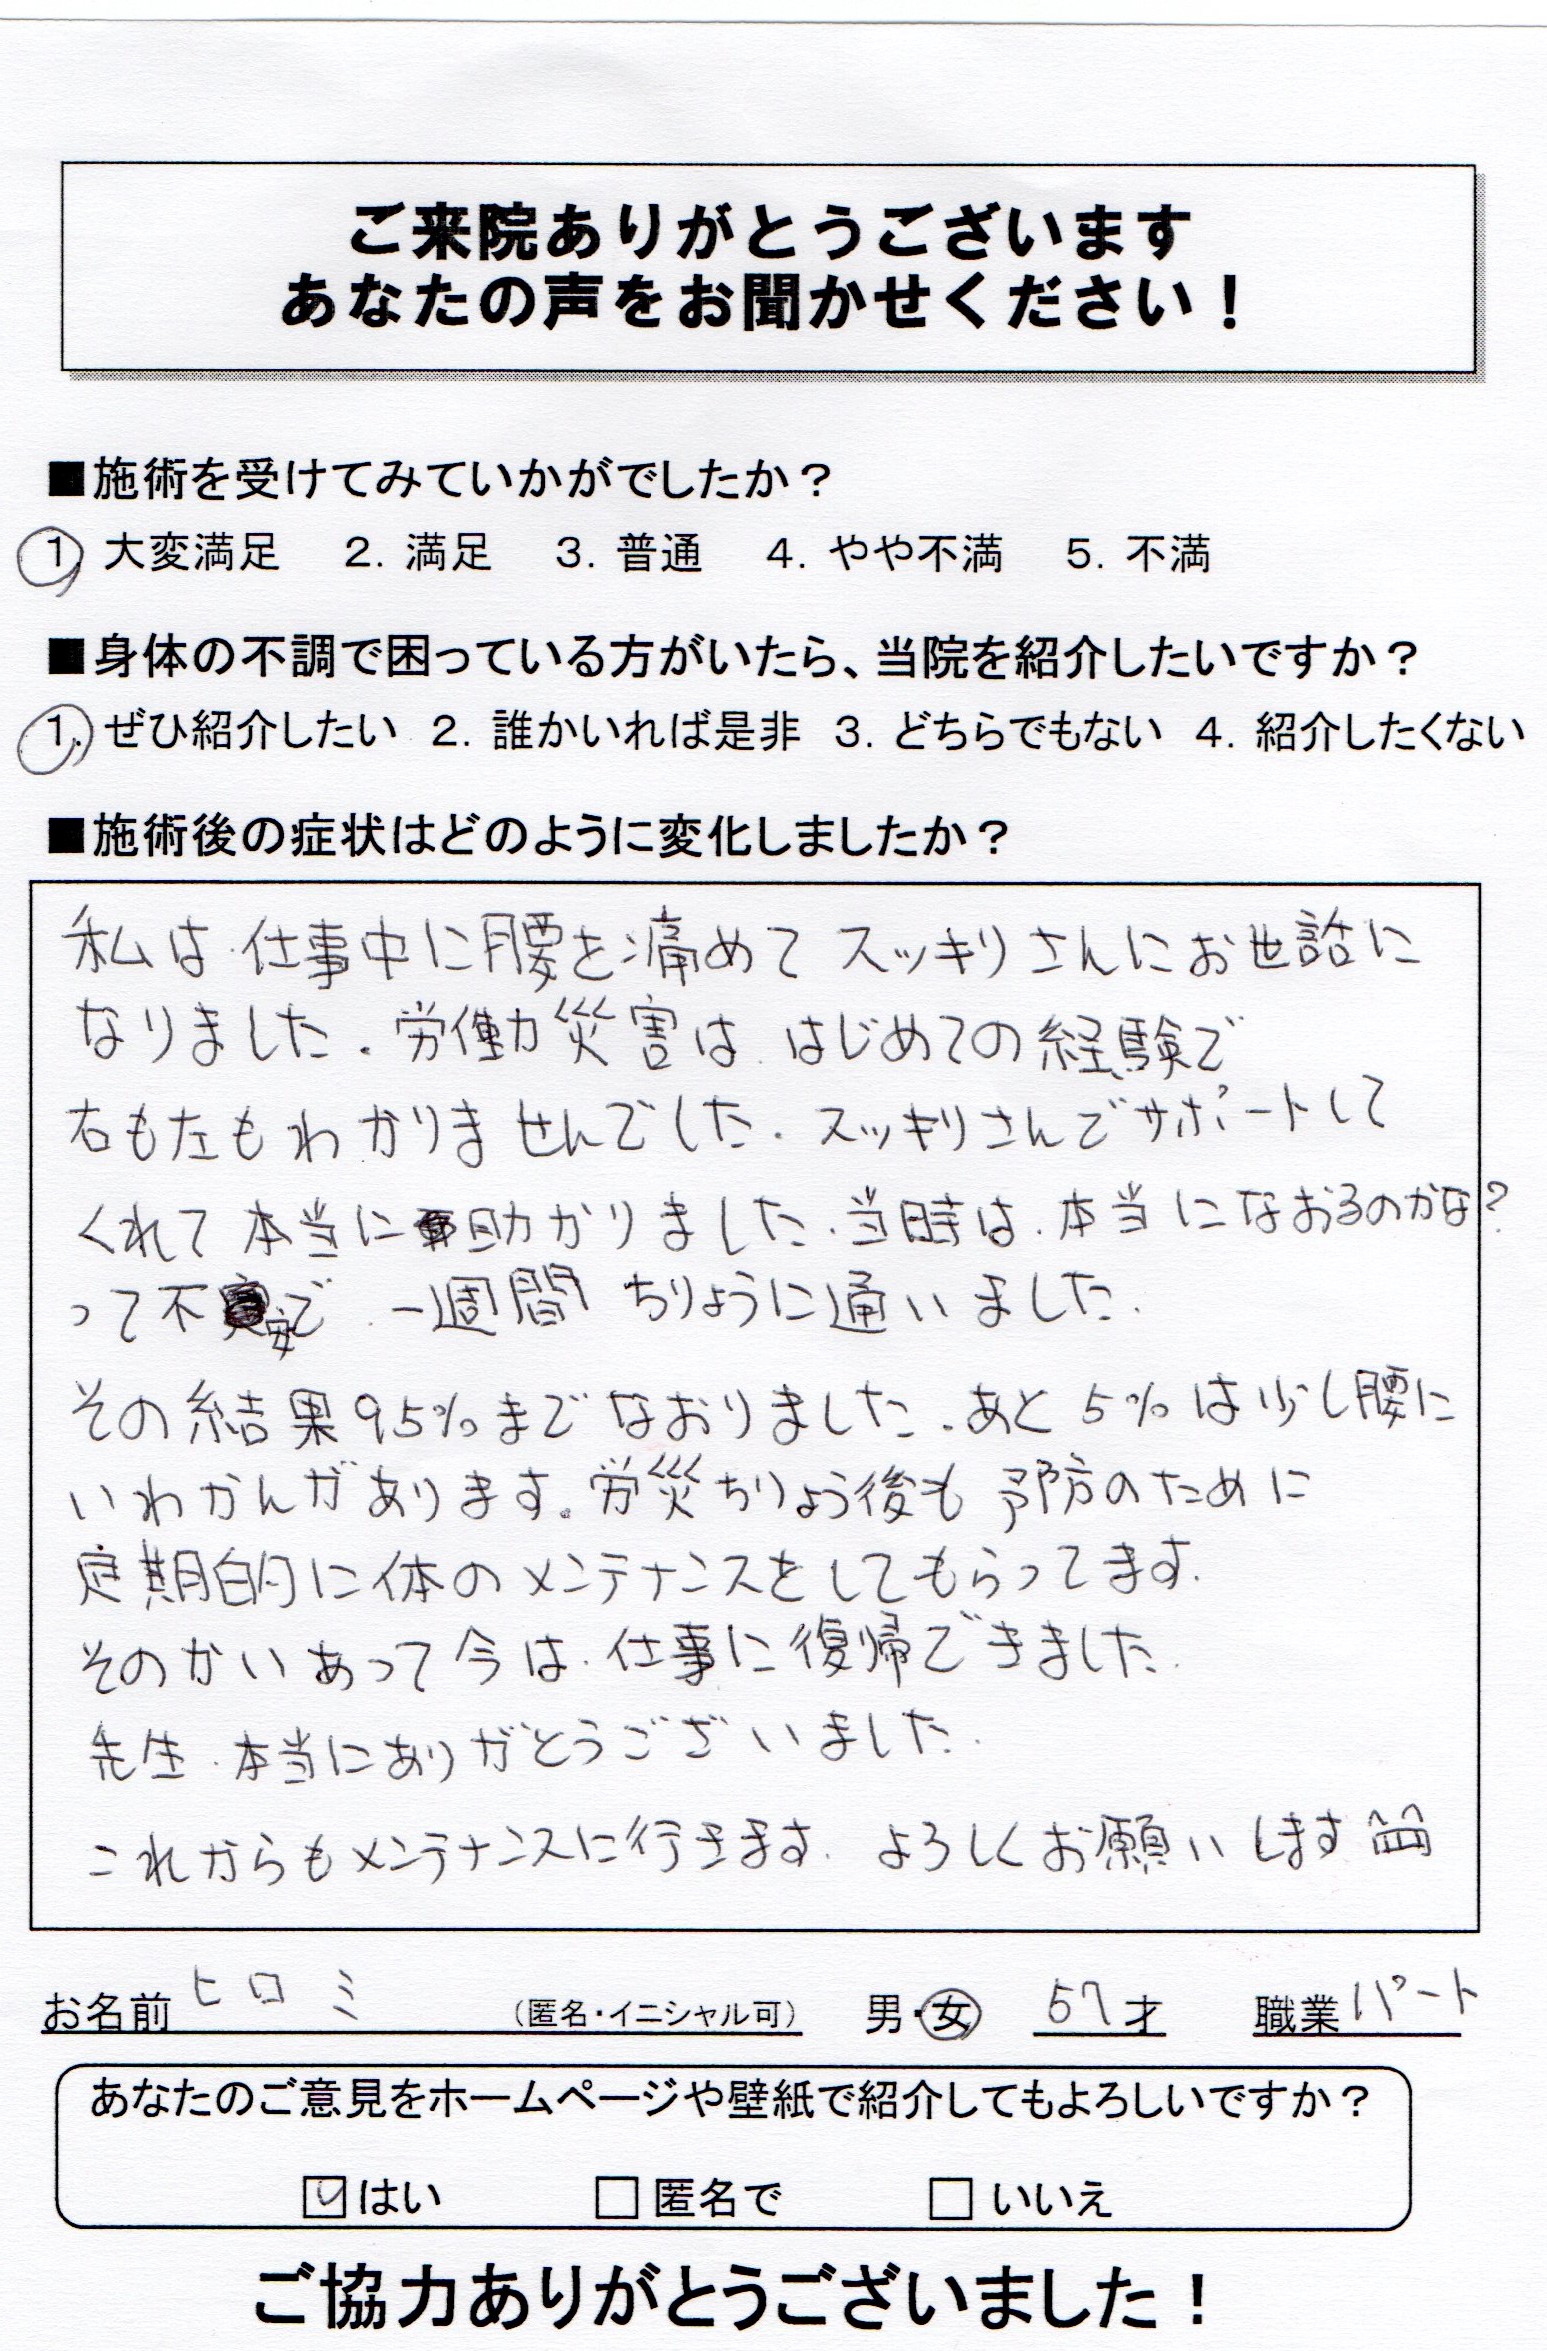 ご来院ありがとうございます
あなたの声をお聞かせください！
■施術を受けてみていかがでしたか？
1. 大変満足　2. 満足　3. 普通　4. やや不満　5. 不満
■身体の不調で困っている方がいたら、当院を紹介したいですか？
1. ぜひ紹介したい　2. 誰かいれば是非　3. どちらでもない　4. 紹介したくない
■施術後の症状はどのように変化しましたか？
私は、仕事中に腰を痛めてスッキリさんにお世話に
なりました。労働災害は、はじめての経験で
右も左もわかりませんでした。スッキリさんでサポートして
くれて本当に助かりました。当時は、本当になおるのかな？
って不安で、一週間ちりょうに通いました。
その結果95%までなおりました。あと5%は少し腰に
いわかんがあります。労災ちりょう後も予防のために
定期的に体のメンテナンスをしてもらってます。
そのかいあって今は、仕事に復帰できました。
先生、本当にありがとうございました。
これからもメンテナンスに行きます。よろしくお願いします
お名前 ヒロミ （匿名・イニシャル可） 男・女 57才 職業 パート
あなたのご意見をホームページや壁紙で紹介してもよろしいですか？
☑はい　□匿名で　□いいえ
ご協力ありがとうございました！